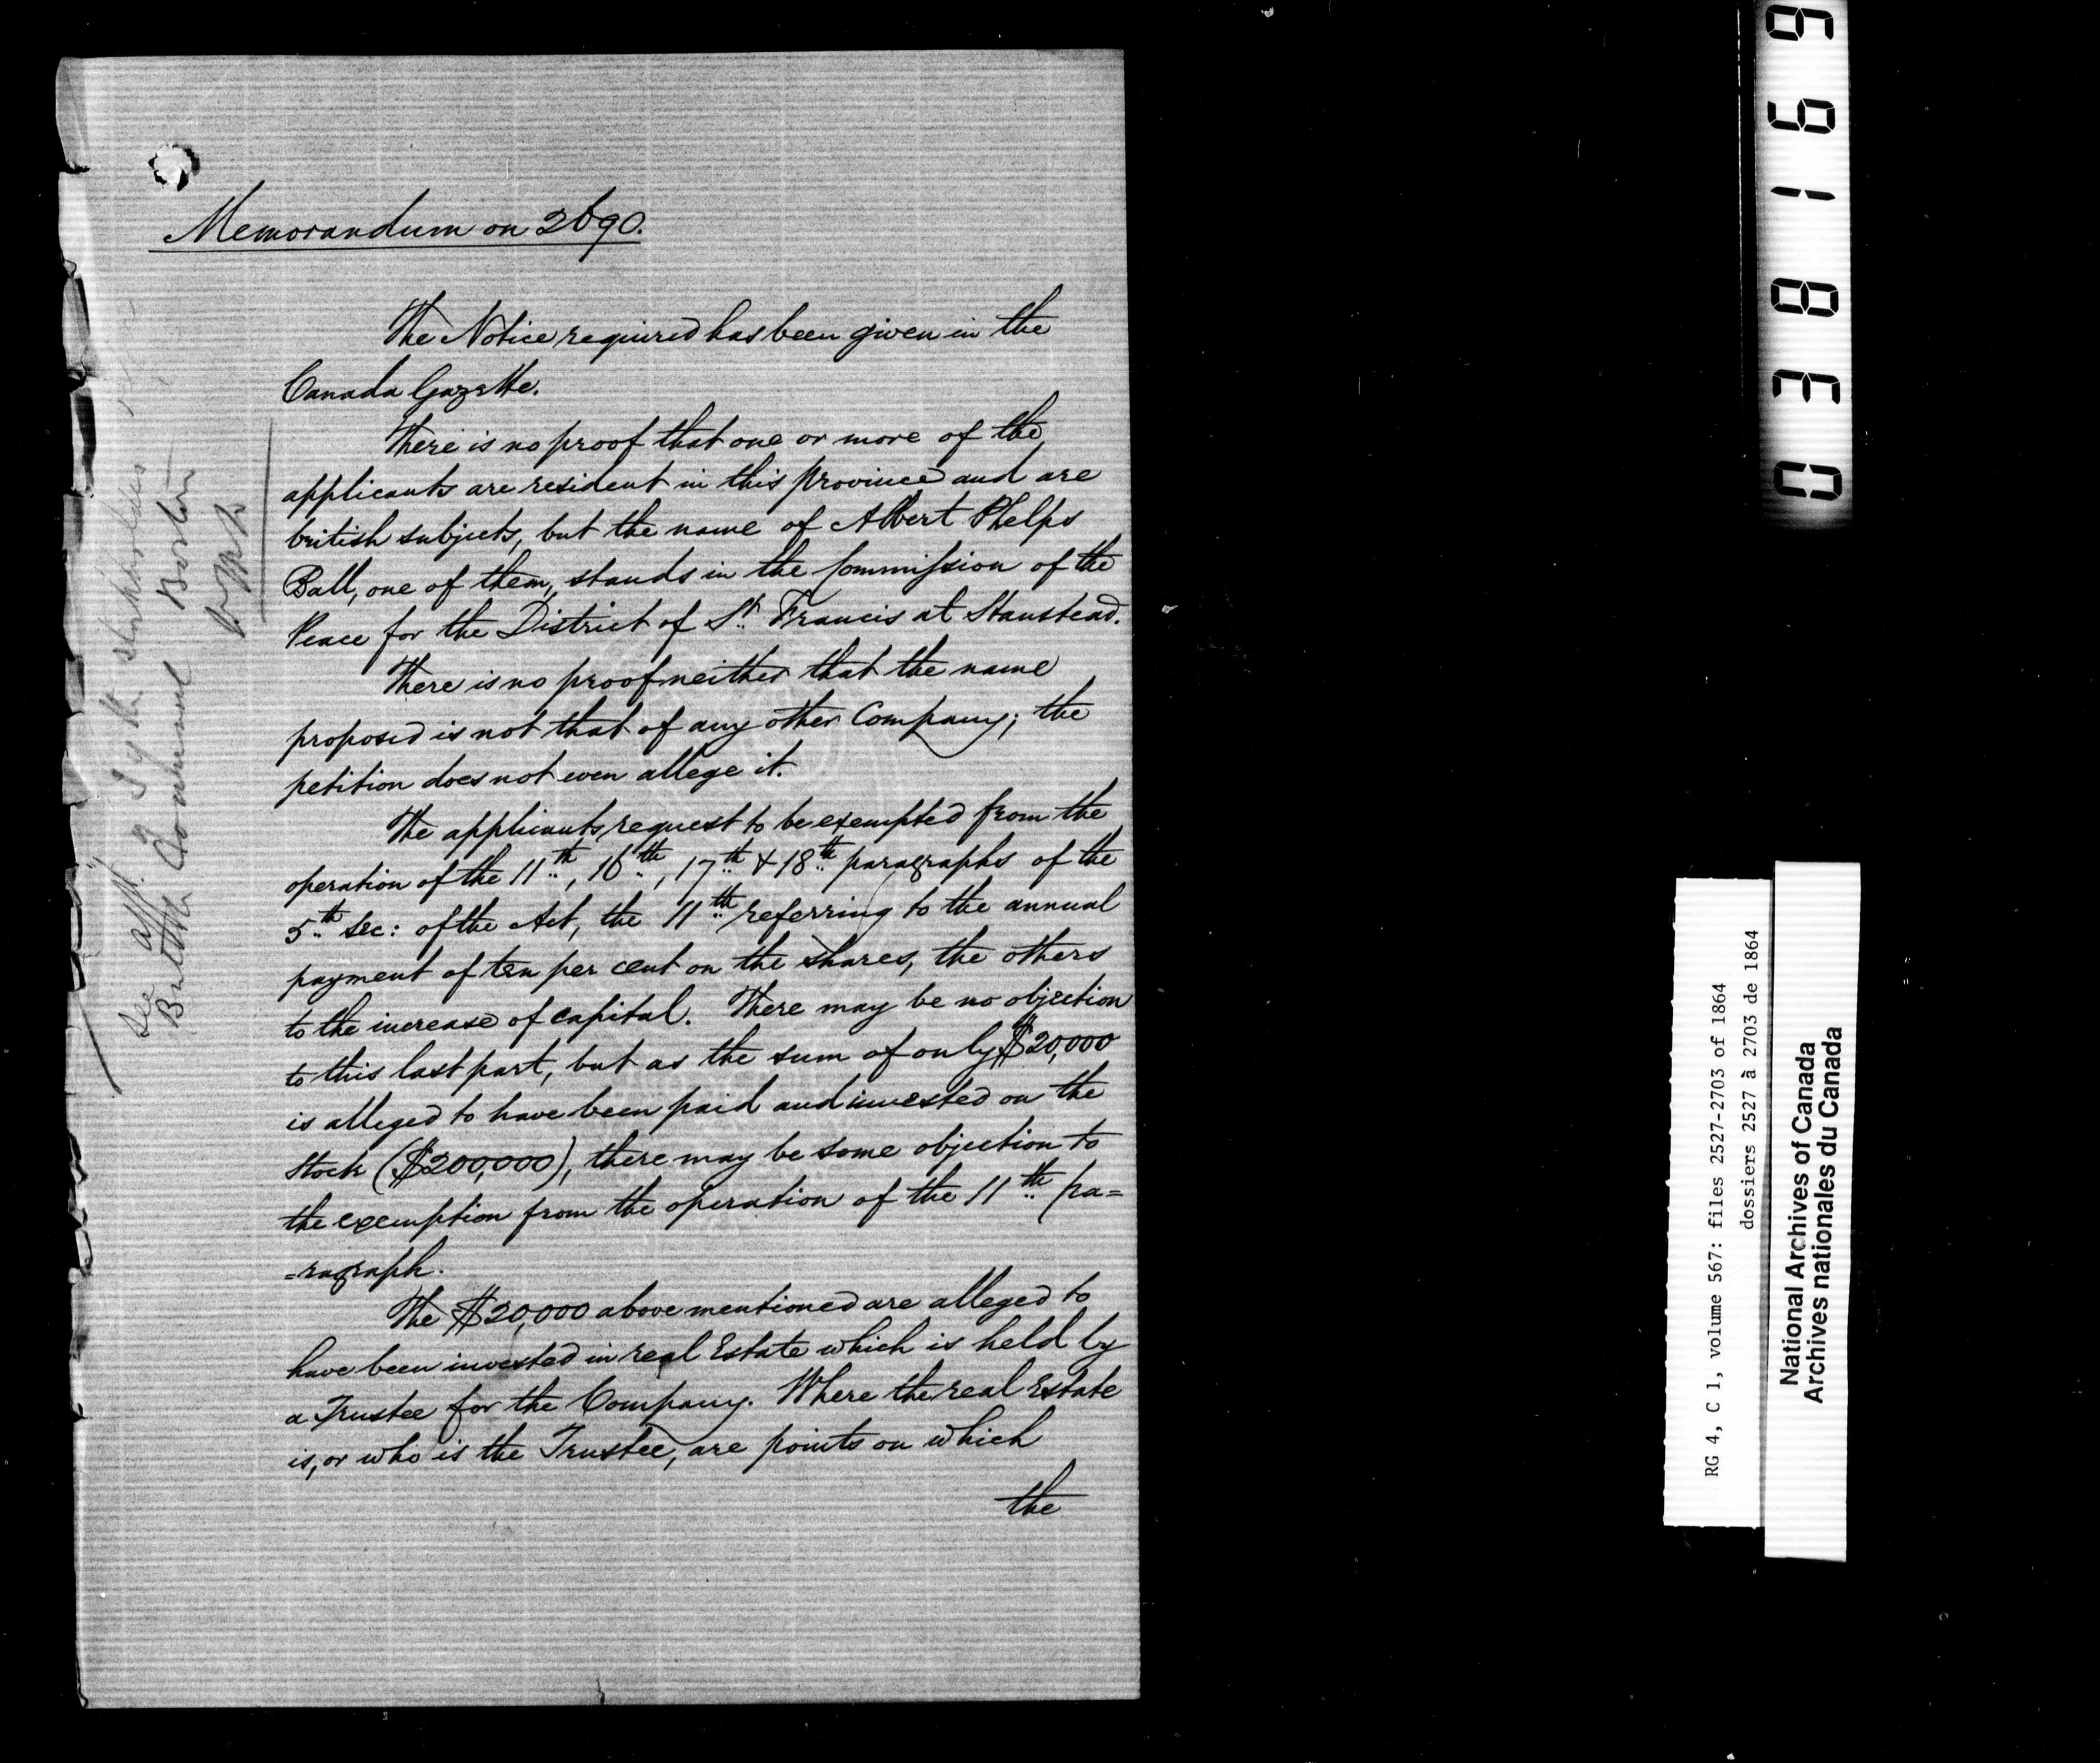 Memorandum on 2690.
The Notice required has been given in the
Canada Gazette.
There is no proof that one or more of the
applicants are resident in this province and are
british subjects, but the name of Albert Phelps
Ball, one of them, stands in the Commission of the
Peace for the District of St. Francis at Stanstead.
There is no proof neither that the name
proposed is not that of any other Company; the
petition does not even allege it.
The applicants request to be exempted from the
operation of the 11th, 16th, 17th & 18th paragraphs of the
5th Sec: of the Act, the 11th referring to the annual
payment of ten per cent on the shares, the others
to the increase of capital. There may be no objection
to this last part, but as the sum of only $20,000
is alleged to have been paid and invested on the
Stock ($200,000), there may be some objection to
the exemption from the operation of the 11th pa=
=ragraph.
The $20,000 above mentioned are alleged to
have been invested in real Estate which is held by
a Trustee for the Company. Where the real Estate
is, or who is the Trustee, are points on which
the
See
Boston
038169
RG 4, C 1, volume 567: files 2527-2703 of 1864
dossiers 2527 à 2703 de 1864
National Archives of Canada
Archives nationales du Canada